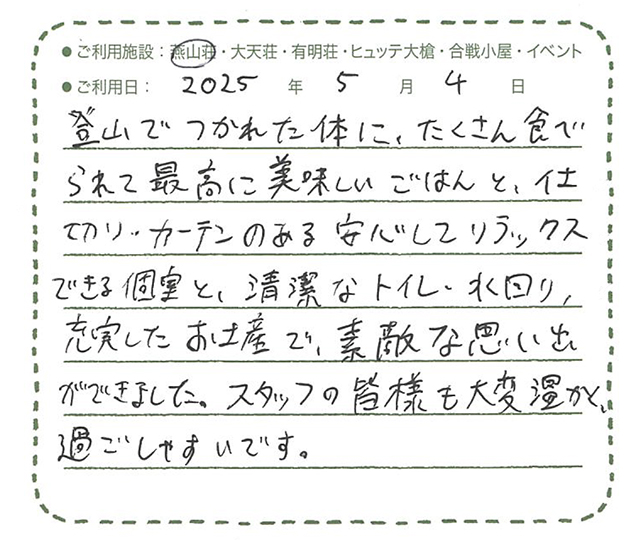 ● ご利用施設：燕山荘・大天荘・有明荘・ヒュッテ大槍・合戦小屋・イベント
● ご利用日： 2025 年 5 月 4 日
登山でつかれた体に、たくさん食べ
られて最高に美味しいごはんと、仕
切り・カーテンのある安心してリラックス
できる個室と、清潔なトイレ・水回り、
充実したお土産で、素敵な思い出
ができました。スタッフの皆様も大変温かく、
過ごしやすいです。